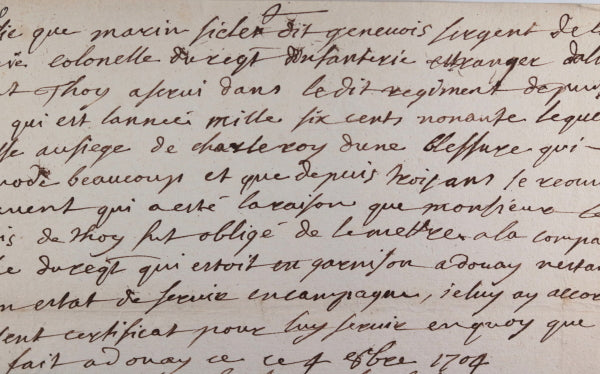 fie que marin sicler dit genevois sergent de la
colonelle du regt dinfanterie estranger dal
Thoy a servi dans le dit regiment depui
qui est lanneé mille six cents nonante leque
au siege de charleroy dune blessure qui -
mode beaucoup et que depuis trois ans se reou
ment qui a esté la raison que monsieur Le
is de Thoy fut obligé de le mettre a la compa
du regt qui estoit en garnison a douay nesta
n estat de servir en campagne, ie luy ay accor
sent certificat pour luy servir en quoy que
fait a douay ce ce 4 8bre 1704